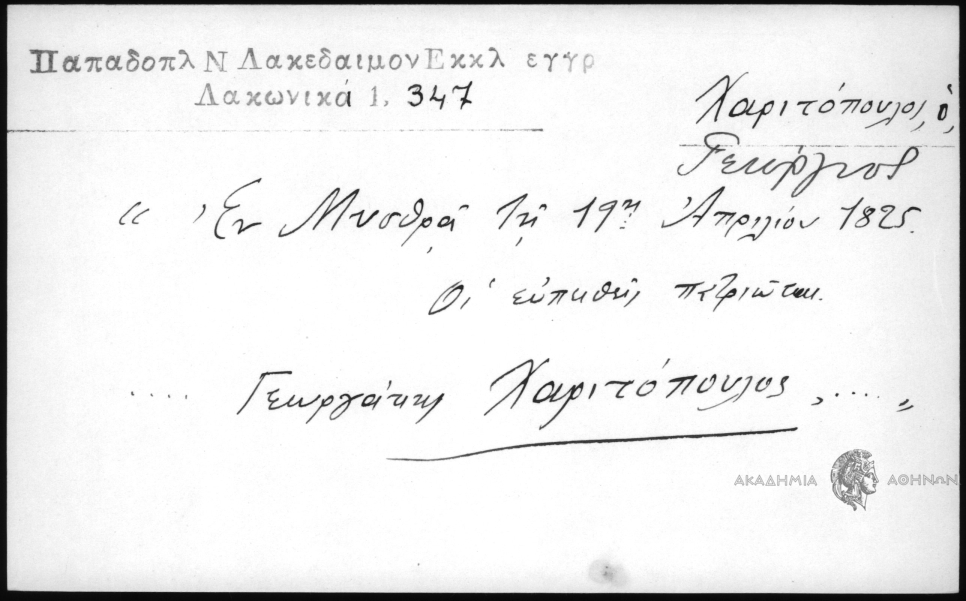 Παπαδοπλ Ν Λακεδαιμον Εκκλ εγγρ
Λακωνικά 1, 347
Χαριτόπουλος, ὁ,
Γεώργιος
“ Ἐν Μυσθρᾷ τῇ 19ῃ Ἀπριλίου 1825.
Οἱ εὐπειθεῖς πατριῶται.
.... Γεωργάκης Χαριτόπουλος, .... „
ΑΚΑΔΗΜΙΑ ΑΘΗΝΩΝ